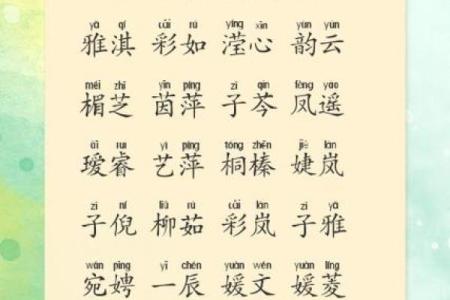 yǎ qí cǎi rú yíng xīn yùn yún
雅淇 彩如 滢心 韵云
méi zhī yīn píng zǐ qín fèng yáo
楣芝 茵萍 子芩 凤遥
ài ruì yì píng tóng zhēn jié lán
瑷睿 艺萍 桐榛 婕岚
zǐ ní liǔ rú cǎi lán zǐ yǎ
子倪 柳茹 彩岚 子雅
wǎn pīng yī chén yuàn wén yuàn líng
宛娉 一辰 媛文 媛菱